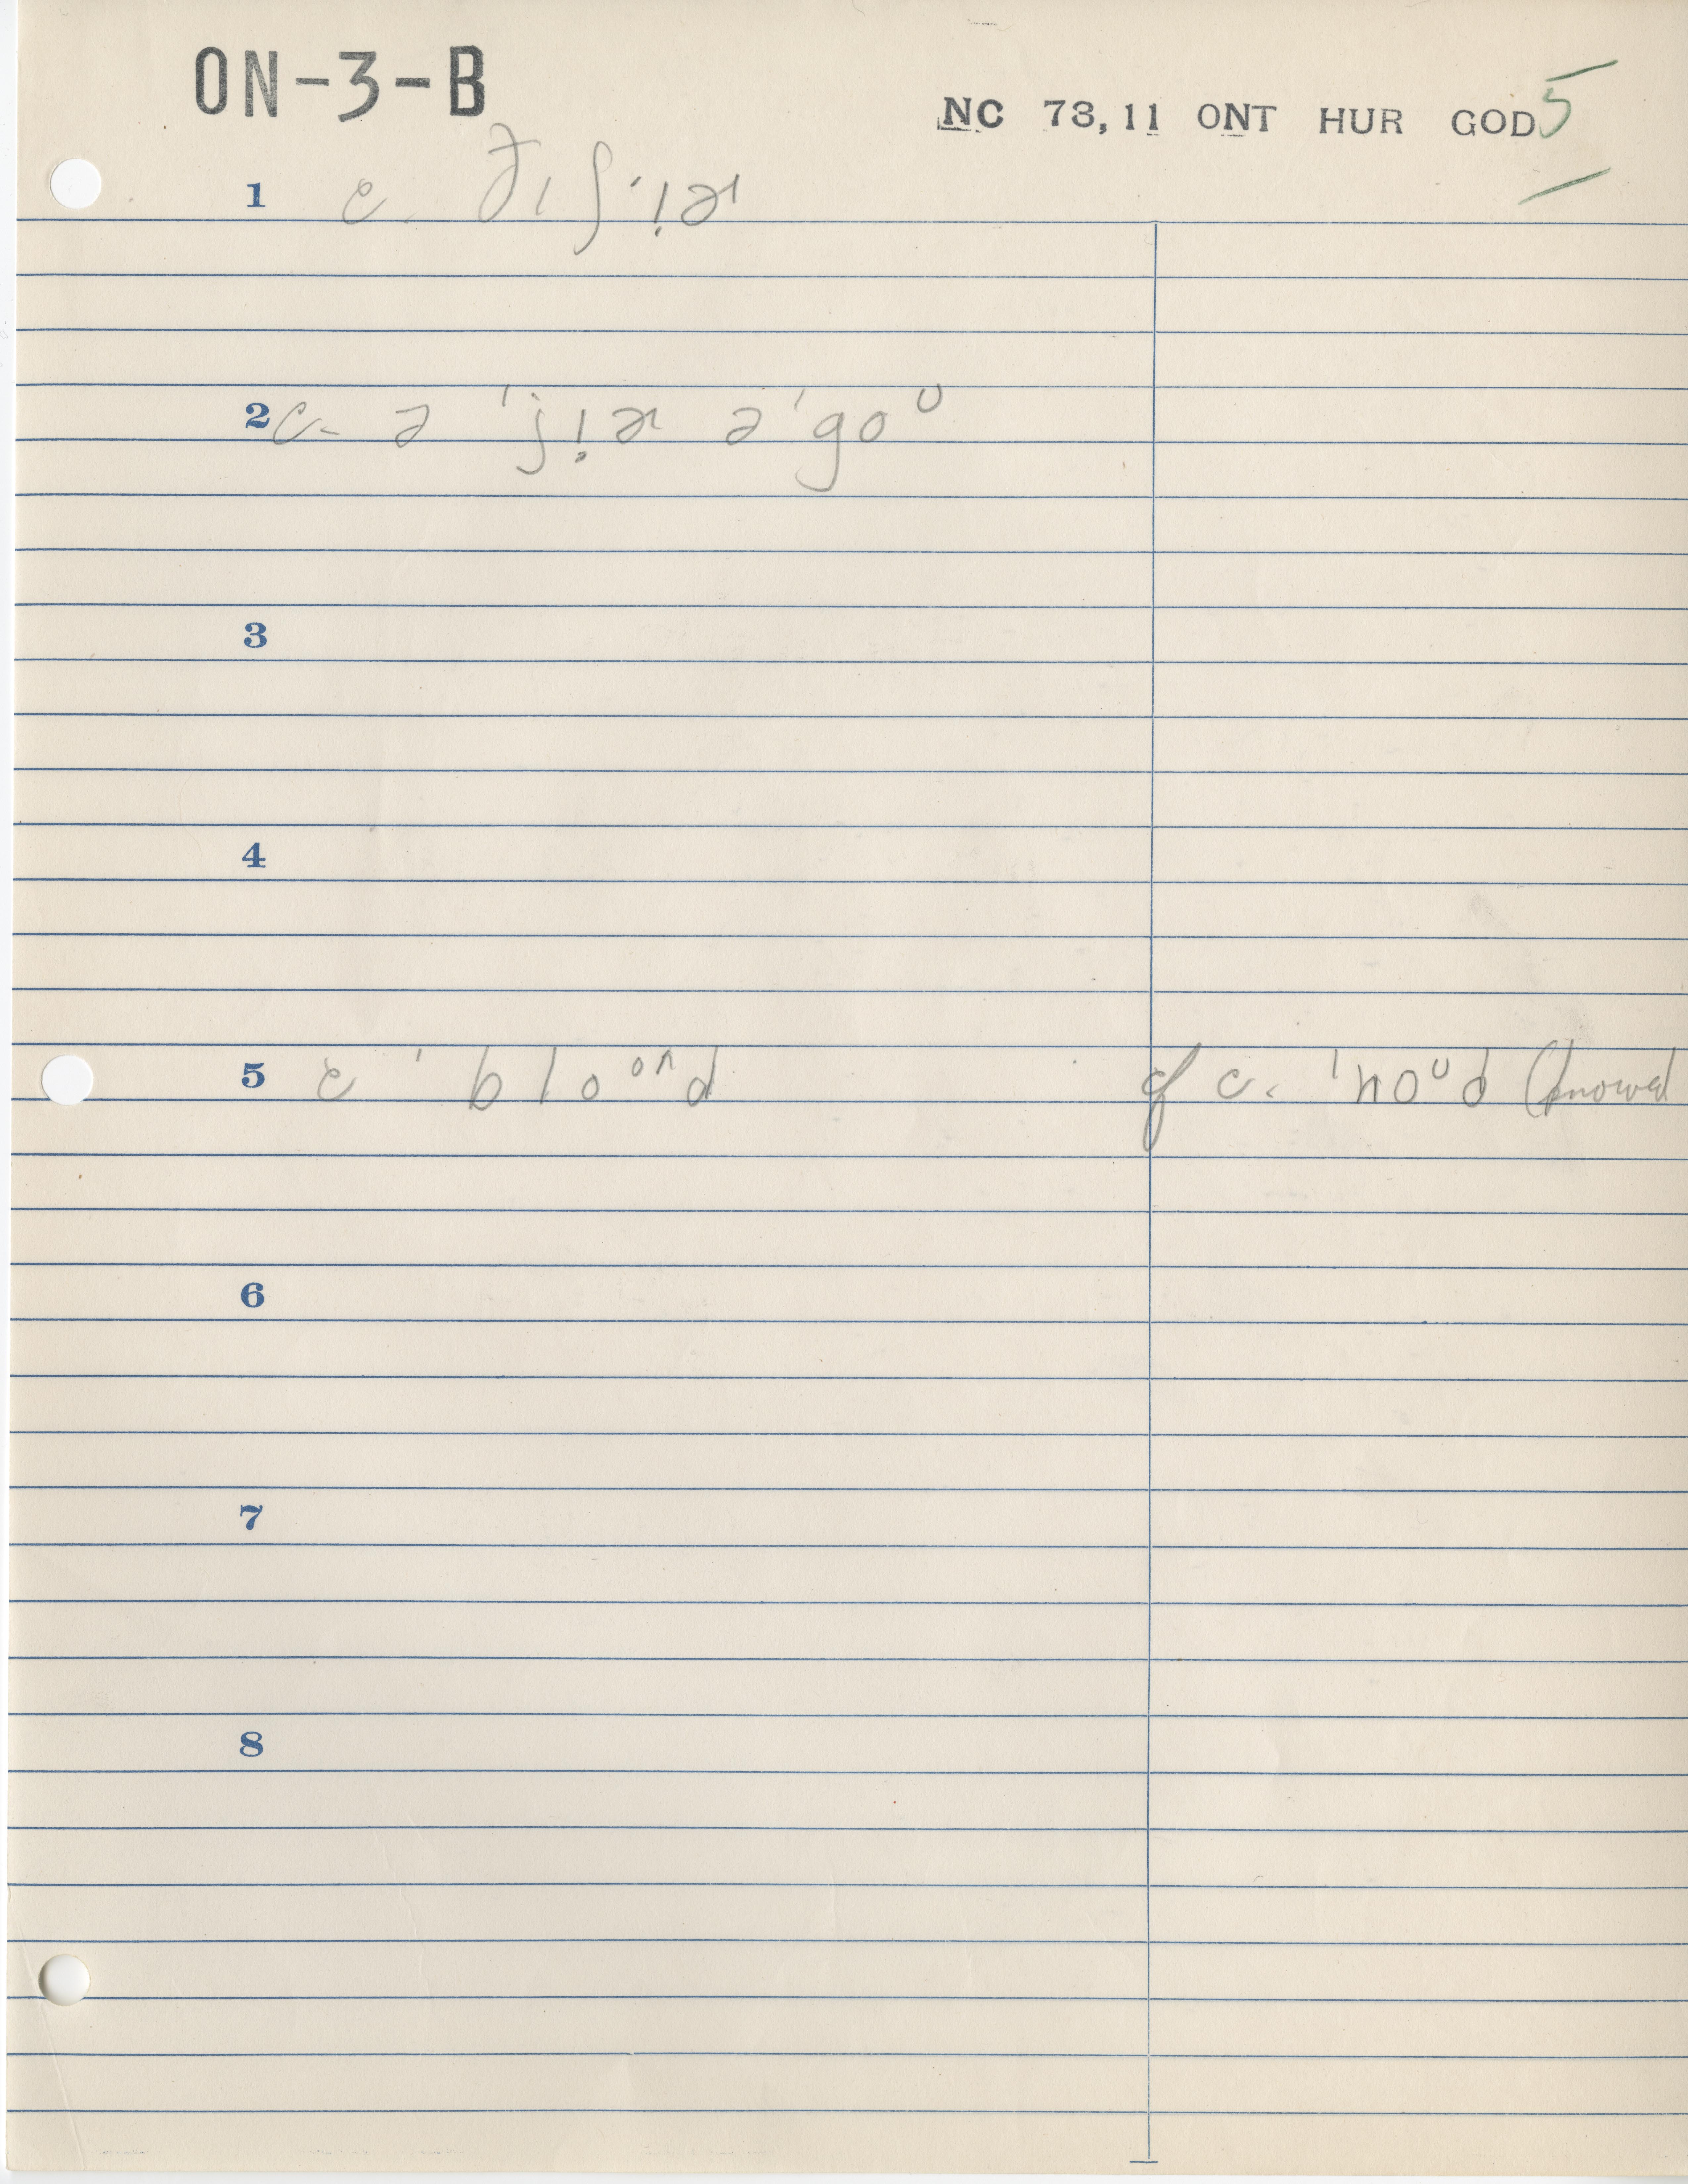 ON-3-B
NC 73,11 ONT HUR GOD 5
1 c. ðɪ ʃ'ɪ̣ɚ
2 c- ə 'jɪ̣ɚ ə'goᶷ
3
4
5 c ' bloᶷⁿd cf c. 'noᶷd (knowed
6
7
8